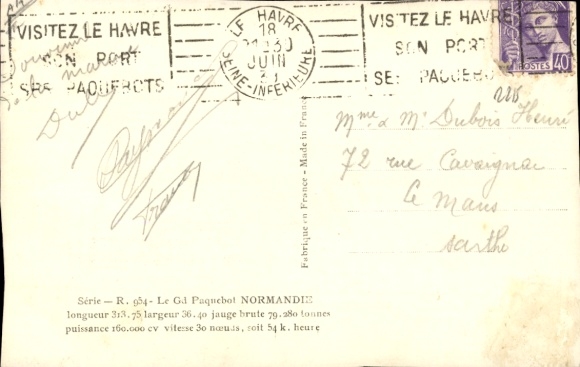 VISITEZ LE HAVRE
SON PORT
SES PAQUEBOTS
LE HAVRE
18
JUIN
SEINE-INFÉRIEURE
VISITEZ LE HAVRE
SON PORT
SES PAQUEBOTS
POSTES 40
Mme & Mr Dubois Henri
72 rue Cavaignac
Le Mans
Sarthe
Fabriqué en France - Made in France
Série — R. 954 - Le Gd Paquebot NORMANDIE
longueur 313.75 largeur 36.40 jauge brute 79.280 tonnes
puissance 160.000 cv vitesse 30 nœuds, soit 54 k. heure